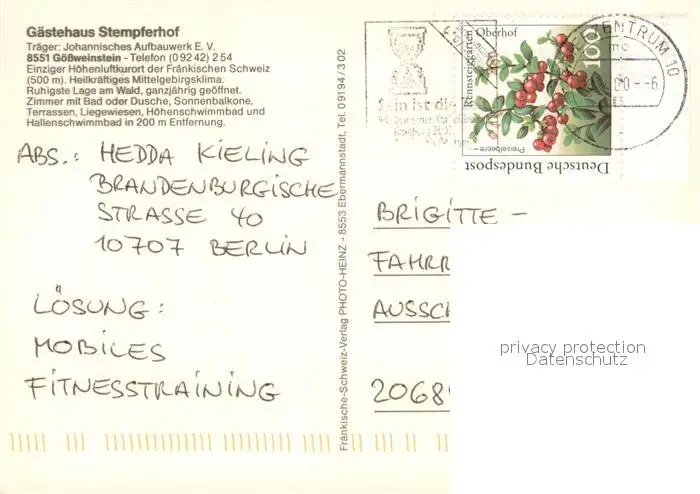 Gästehaus Stempferhof
Träger: Johannisches Aufbauwerk E. V.
8551 Gößweinstein - Telefon (0 92 42) 2 54
Einziger Höhenluftkurort der Fränkischen Schweiz
(500 m). Heilkräftiges Mittelgebirgsklima.
Ruhigste Lage am Wald, ganzjährig geöffnet.
Zimmer mit Bad oder Dusche, Sonnenbalkone,
Terrassen, Liegewiesen, Höhenschwimmbad und
Hallenschwimmbad in 200 m Entfernung.
ABS.: HEDDA KIELING
BRANDENBURGISCHE
STRASSE 40
10707 BERLIN
LÖSUNG:
MOBILES
FITNESSTRAINING
Fränkische-Schweiz-Verlag PHOTO-HEINZ - 8553 Ebermannstadt, Tel. 09194 / 3 02
Sein ist die
Rennsteiggarten Oberhof
100
Preiselbeere
Deutsche Bundespost
ZENTRUM 10
BRIGITTE -
FAHRR
AUSSCH
2068
privacy protection
Datenschutz